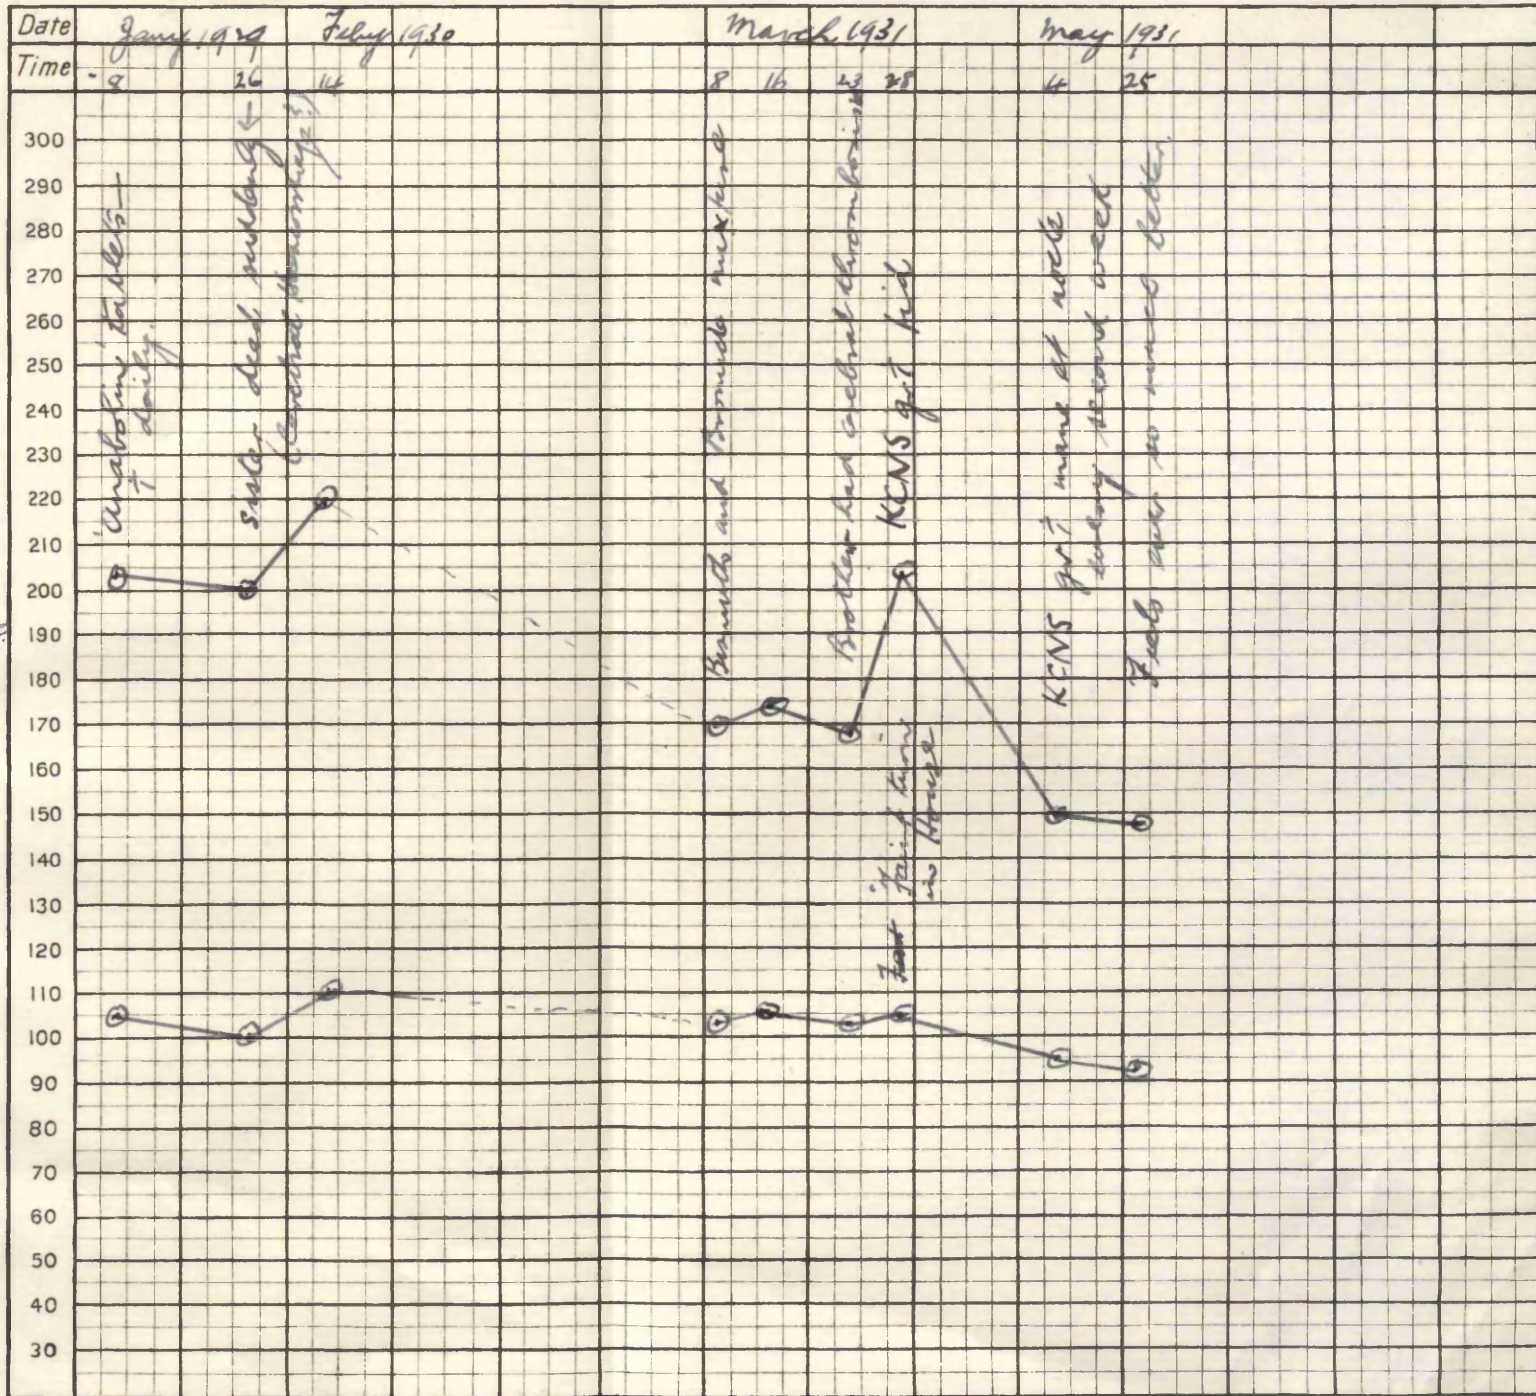 Date Jany 1929 Feby 1930 March 1931 May 1931
Time 8 26 14 8 16 23 28 4 25
300
290
280
270
260
250
240
230
220
210
200
190
180
170
160
150
140
130
120
110
100
90
80
70
60
50
40
30
'Anabolin' tablets—
T daily.
Sister died suddenly ←
(Cerebral Haemorrhage?)
Bismuth and Bromide mixture
Brother had cerebral thrombosis
KCNS gr.T tid
'Faint turn'
in House
KCNS gr.T mane et nocte
every second week
Feels ever so much better.